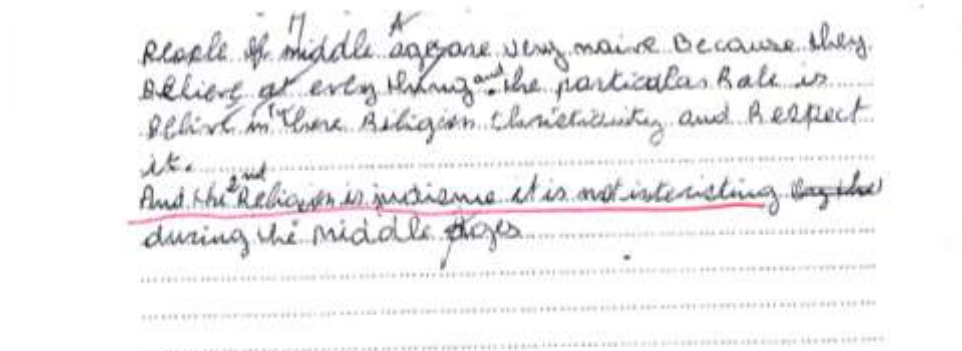 People of Middle Ages are very naive Because they
Believe at every thing and the particular Rule is
Belive in there Religion Christianity and Respect
it.
And the 2nd Religion is it is not interisting by the
during the Middle Ages